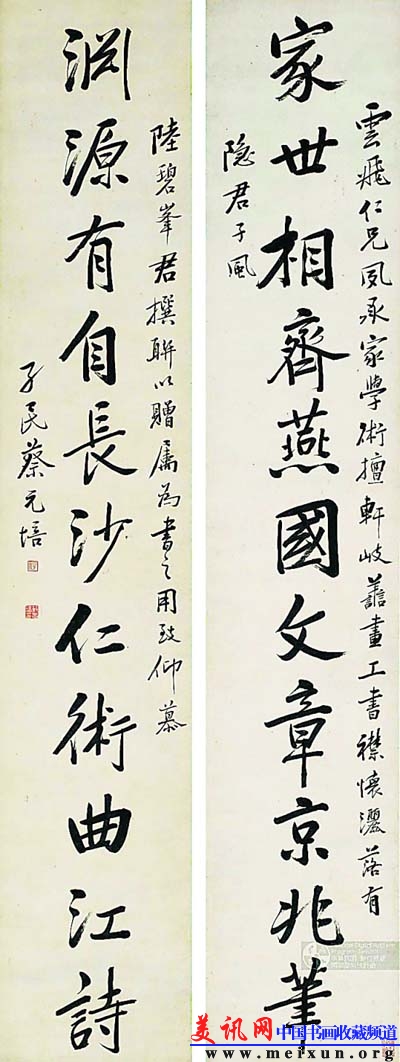 雲飛仁兄夙承家學術擅軒岐譱畫工書襟懷灑落有
隐君子風
家世相齊燕國文章京兆筆
陸碧峯君撰聨以贈屬為書之用致仰慕
渕源有自長沙仁術曲江詩
孑民蔡元培
美讯网 中国书画收藏频道
www.meixun.org